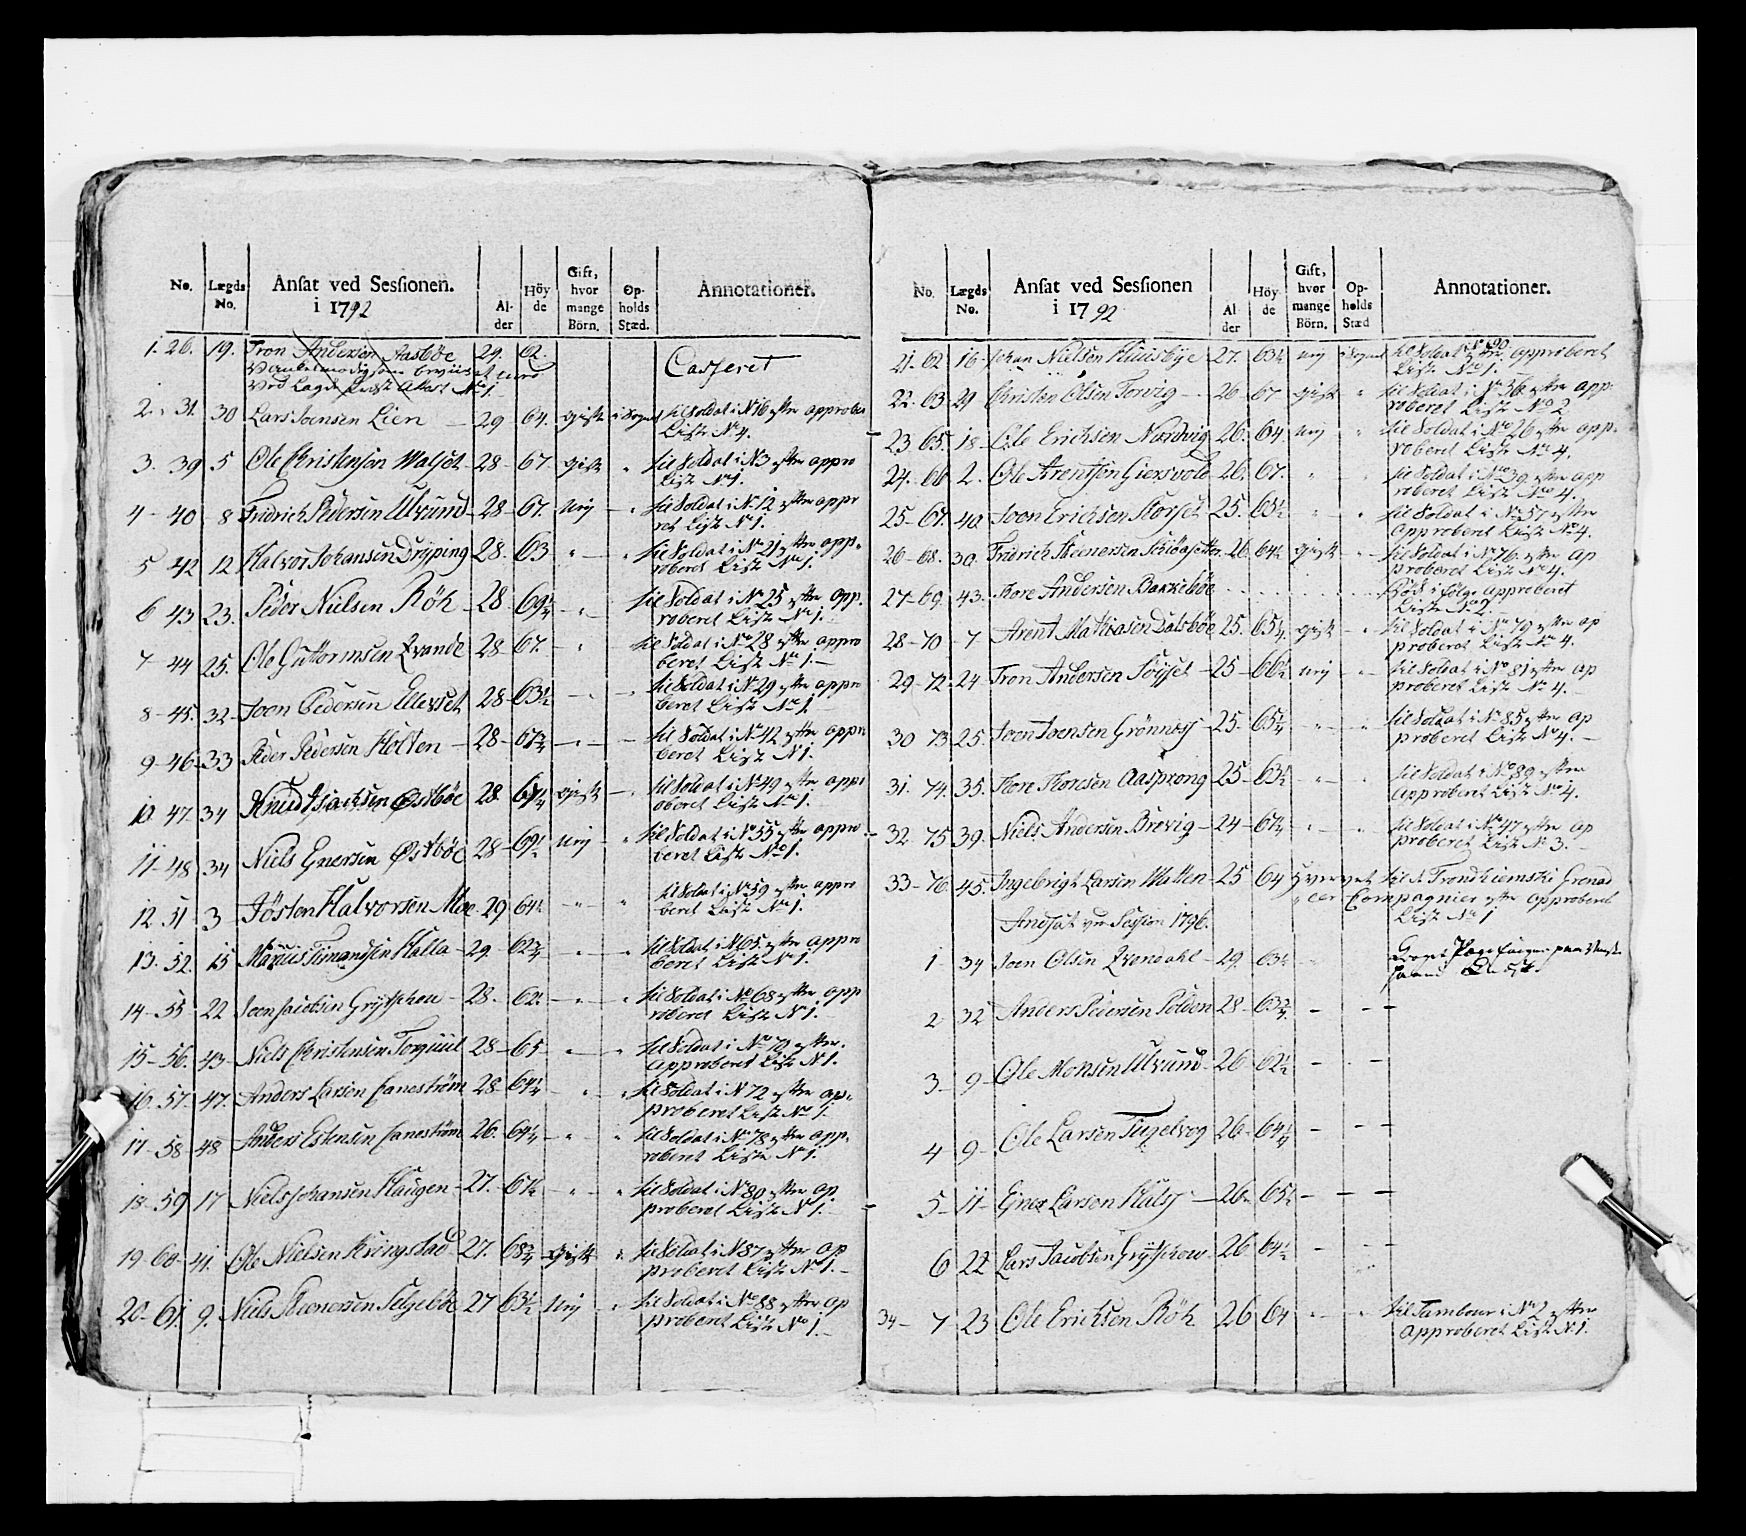 No. Lægds No. Ansat ved Sessionen. i 1792 Al-der Höy de Gift, hvor mange Börn. Op-holds Stæd. Annotationer.
1. 26. 19. Tron Andersen Aasböe 29. 62. Casseret
2. 31. 30 Lars Joensen Lien 29 64. gift i Sognet til Soldat i N 16 efter approberet
Liste No 4.
3. 39 5 Ole Christensen Walset 28 67. gift " til Soldat i N 3 efter appro
Liste No 1.
4 40 8 Fridrich Pedersen Ulvund 28 67. Ugij " til Soldat i N. 12 efter appr
ret Liste No 1.
5 42 12 Halvor Johansen Drÿping 28. 63 " " til Soldat i No 21 efter app-
roberet Liste No 1.
6 43 23. Peder Nielsen Röh 28 69½ " til Soldat i No 25 efter app.
roberet Liste No 1.
7 44 25. Ole Guttormsen Qvande 28 67. " til Soldat i No 28 efter appro
beret Liste No 1.
8 45. 32 Joen Pedersen Ellevset 28 63½ " til Soldat i N 29 efter appro
beret Liste No 1.
9 46 33 Peder Pedersen Holten 28 67¾ " til Soldat i No 42 efter appro
beret Liste N 1.
10. 47. 34 Knud Isachsen Østböe 28. gift " til Soldat i No 49 efter appr
oberet Liste No 1.
11 48 34 Niels Enersen Østböe 28 69½ Ugij " til Soldat i No 55 efter appro
beret Liste No 1.
12 51 3 Jösten Halvorsen Moe 29 64½ " " til Soldat i No 59 efter appro
beret Liste No 1.
13. 52. 15 Marius Timandsen Halla 29. 62¾ " " til Soldat i N 65. efter appro
beret Liste No 1.
14 55 22 Joen Jacobsen Grÿtschou 28. 62½ " " til Soldat i No 68 efter app
roberet Liste N 1.
15 56. 43 Niels Christensen Torquiul 28 65 " " til Soldat i No 70 efter.
approberet Liste N 1.
16. 57. 47. Anders Larsen Caneström 28 64¼ " " til Soldat i N 72 efter ap-
proberet Liste No 1.
17 58 48 Anders Estensen Caneström 26. 64¼ " " til Soldat i No 78 efter app-
roberet Liste No 1.
18 59 17 Niels Johansen Haugen 27. " " til Soldat i No 80 efter ap
proberet Liste N 1.
19 60 41. Ole Nielsen Kringstad 27. 68¾ gift " til Soldat i N 87 efter ap
proberet Liste No 1.
20 61. 9. Niels Steenersen Selgeböe 27 63½ Ugij " til Soldat i No 88 efter ap
proberet Liste No 1.
No. Lægds No. Ansat ved Sessionen i 1792 Al der Höy de Gift, hvor mange Börn. Op-holds Stæd Annotationer.
21. 62 16 Johan Nielsen Huusbÿe 27. 63½ Ugij i Sognet til Soldat i No 90 efter approberet
Liste No 1.
22. 63 29 Christen Olsen Torvig 26 67 gift " til Soldat i No 36 efter app-
roberet Liste No 2
23 65. 18 Ole Erichsen Nordvig 26. 64 Ugij " til Soldat i No 26 efter app-
roberet Liste No 4.
24. 66 2. Ole Arentsen Giersvold 26. 67. " " til Soldat i No 39 efter app
roberet Liste No 4.
25 67. 40 Joen Erichsen Storset 25. 65½ " " til Soldat i No 57 efter
approberet Liste No 4.
26 68. 30. Fridrich Steenersen 26 64½ gift " til Soldat i No 76. efter ap
proberet Liste No 4.
27 69. 43. Tore Andersen Bakkeböe Död i fölge approberet
Liste No 2
28 70 7 Arent Mathiasen Dalsböe 25. 65¼ gift " til Soldat i No 79 efter ap
proberet Liste No 4.
29 72. 24 Tron Andersen Söÿset 25 66½ Ugij " til Soldat i No 81 efter ap
proberet Liste No 4.
30 73. 25. Joen Joensen Grönnes 25. 65½ " " til Soldat i No 85 efter ap
proberet Liste No 4.
31. 74. 35. Tore Toresen Aasprong 25 63½ " " til Soldat i No 89 efter
approberet Liste No 4.
32. 75 39. Niels Andersen Brevig 24 67¼ " " til Soldat i No 47 efter ap
proberet Liste No 3.
33 76. 45. Ingebrigt Larsen Watten 25 64 til Trondhiemske Grenad
eer Compagnier efter approberet
Liste No 1
Andsat ved Session 1796.
1 34 Joen Olsen Qvendahl 29. 63½ "
2 32 Anders Pedersen Solden 28 63¾
3 9 Ole Monsen Ulvund 26 62½
4 9 Ole Larsen Tugelvog 26 64¼
5 11 Ener Larsen Huls 26 65½
6 22 Lars Jacobsen Grÿtschow 26 64½
34 7 23 Ole Erichsen Röh 26 64 " " til Tambour i No 2 efter
approberet Liste N 1.